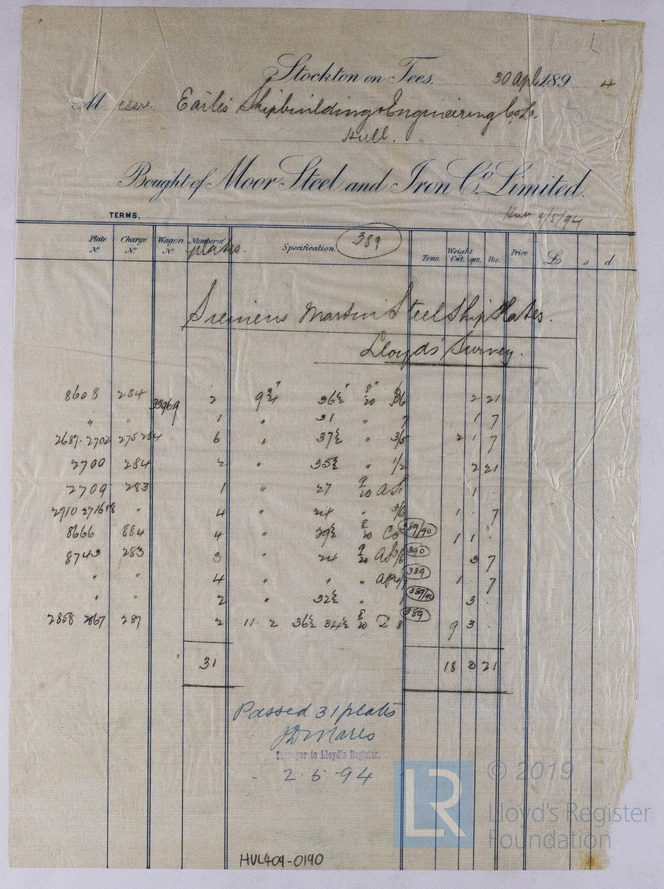 Stockton on Tees. 30 Apl 1894
Messrs Earle's Shipbuilding & Engineering Co Ld.
Hull.
Bought of Moor Steel and Iron Co. Limited.
TERMS. Hull 2/5/94
Plate No. Charge No. Wagon No. Number of plates. Specification. 389 Weight Tons. Cwt. qrs. lbs. Price £ s d
Siemens Martin Steel Ship Plates.
Lloyds' Survey.
8608 284 2 9 36½ 2 21
" " 1 " 31 1 7
2687-2702 6 " 37½ 2 1 7
2700 284 2 " 35½ " 1/2 2 21
2709 283 1 " 27 1
" 4 " 24 " 1 7
8666 884 4 " 29½ 389/90 1 1
8743 283 3 " 24 390 3 7
" " 4 " " " 389 1 7
" " 2 " 32½ " 389/90 3
2858 2867 287 2 11 2 36½ 34½ 389 9 3
31 18 3 21
Passed 31 plates
Surveyor to Lloyd's Register.
2.5.94
LR © 2019
Lloyd's Register
Foundation
HUL409-0190